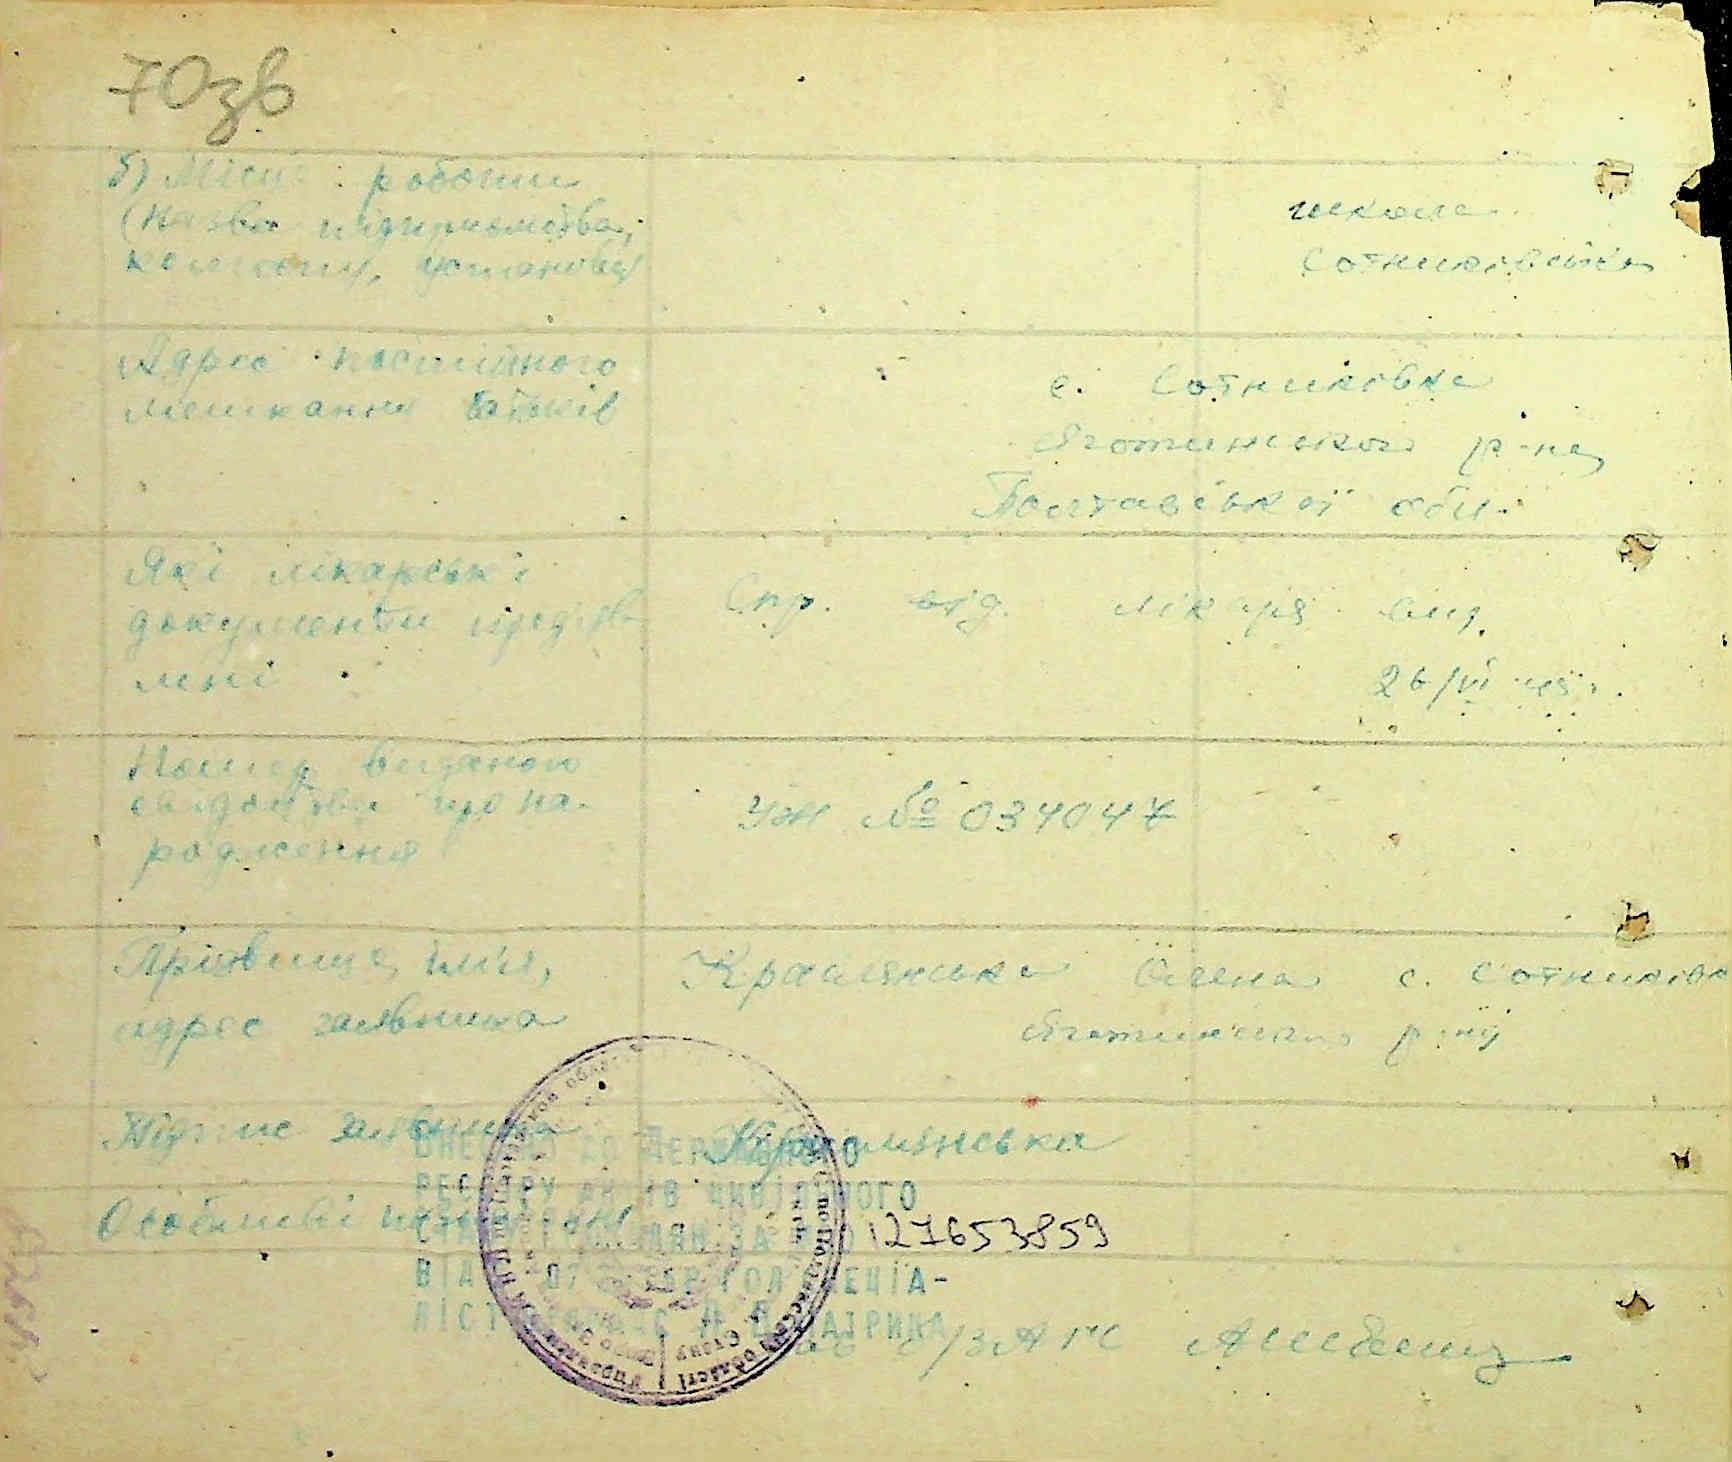 70зв
5) Місце роботи
(Назва підприємства,
колгоспу, установи)
школа
Сотниківська
Адрес постійного
мешкання батьків
с. Сотниківка
Яготинського р-на,
Полтавської обл.
Які лікарські
документи предʼяв
лені
Спр. від. лікаря вид.
26/VI 45 р.
Номер виданого
свідоцтва про на-
родження
УЖ № 034047
Прізвище, імʼя,
адрес заявника
Крамянська Олена с. Сотниківка
Яготинського р-ну
Підпис заявника
Крамлянська
ВНЕСЕНО ДО ДЕРЖАВНОГО
РЕЄСТРУ АКТІВ ЦИВІЛЬНОГО
Особливі
СТАНУ ГРОМАДЯН ЗА
127653859
ВІД ГОЛ СПЕЦІА-
ЛІСТ
с/ЗАГС